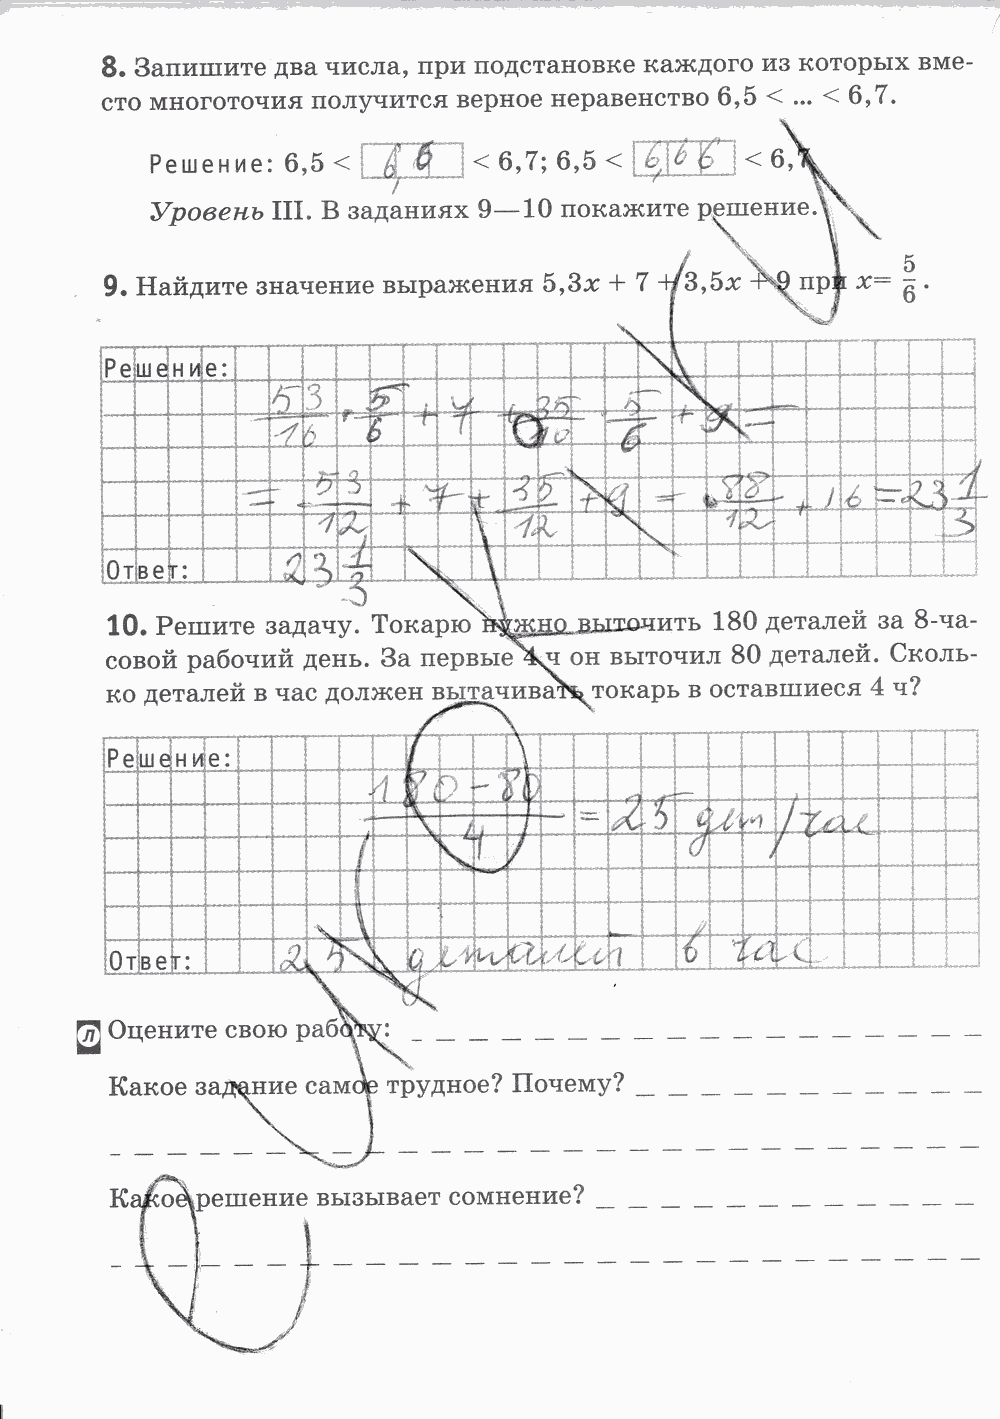 8. Запишите два числа, при подстановке каждого из которых вме-
сто многоточия получится верное неравенство 6,5 < ... < 6,7.
Решение: 6,5 < 6,6 < 6,7; 6,5 < 6,66 < 6,7
Уровень III. В заданиях 9—10 покажите решение.
9. Найдите значение выражения 5,3x + 7 + 3,5x + 9 при x= 5/6.
Решение:
53/16 · 5/6 + 7 + 35/10 · 5/6 + 9 =
= 53/12 + 7 + 35/12 + 9 = 88/12 + 16 = 23 1/3
Ответ: 23 1/3
10. Решите задачу. Токарю нужно выточить 180 деталей за 8-ча-
совой рабочий день. За первые 4 ч он выточил 80 деталей. Сколь-
ко деталей в час должен вытачивать токарь в оставшиеся 4 ч?
Решение:
180-80/4 = 25 дет/час
Ответ: 25 деталей в час
Л Оцените свою работу:
Какое задание самое трудное? Почему?
Какое решение вызывает сомнение?